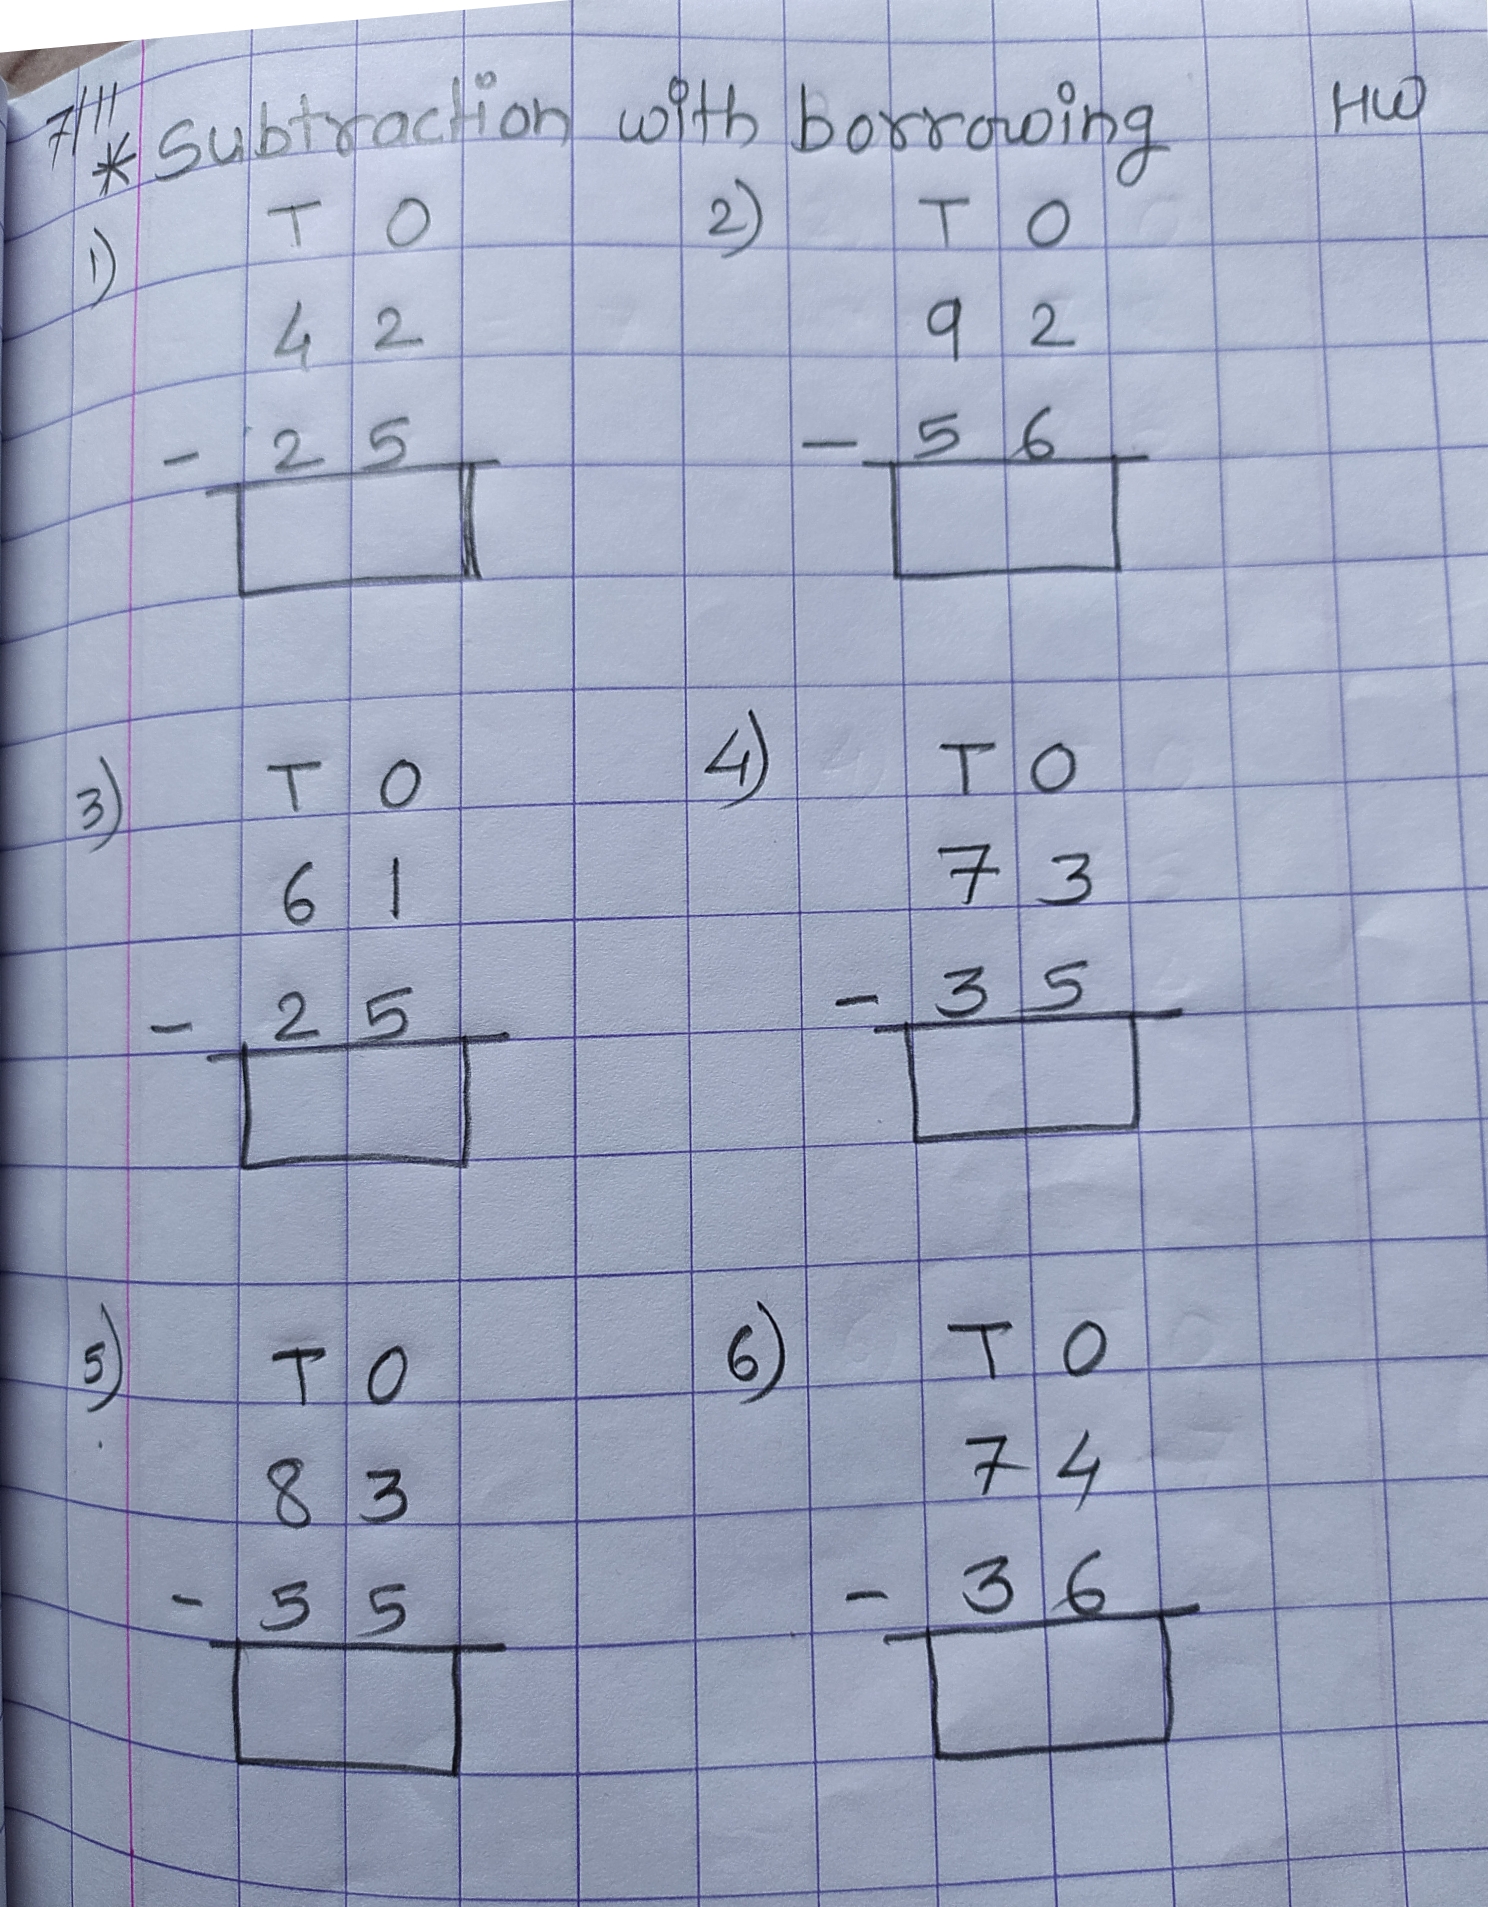 7/11
* Subtraction with borrowing HW
1) T O 2) T O
4 2 9 2
- 2 5 - 5 6
3) T O 4) T O
6 1 7 3
- 2 5 - 3 5
5) T O 6) T O
8 3 7 4
- 5 5 - 3 6